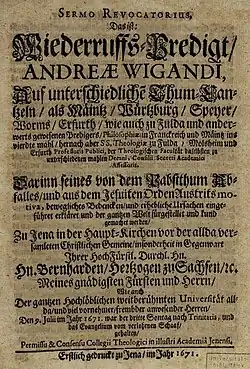 SERMO REVOCATORIUS,
Das ist:
Wiederruffs-Predigt/
ANDREÆ WIGANDI,
Auf unterschiedliche Thum-Can-
tzeln/ als Mäintz/ Würtzburg/ Speyer/
Worms/ Erfurth/ wie auch zu Fulda und ander-
werts gewesenen Predigers/ Philosophiæ in Franckreich und Mäintz ins
vierdte mahl/ hernach aber SS. Theologiæ zu Fulda/ Molsheim und
Erfurth Professoris Publici, der Theologischen Facultät daselbsten zu
unterschiedenen mahlen Decani, Consilii Secreti Academici
Assessoris.
Darinn seines von dem Pabsthum Ab-
falles/ und aus dem Jesuiten Orden Austrits mo-
tiva, bewegliches Bedencken/ und erhebliche Ursachen einge-
führet erkläret und der gantzen Welt fürgestellet und kund
gemachet werden/
Zu Jena in der Haupt-Kirchen vor der allda ver-
samleten Christlichen Gemeine/ insonderheit in Gegenwart
Ihrer HochFürstl. Durchl. Hn.
Hn. Bernharden/ Hertzogen zu Sachsen/ ꝛc.
Meines gnädigsten Fürsten und Herrn/
Wie auch
Der gantzen Hochlöblichen weitberühmten Universität all-
da/ und viel vornehmer/ frembder anwesender Herren/
Den 9. Julii im Jahr 1671. war der dritte Sontag nach Trinitatis, und
das Evangelium vom verlohrnen Schaaf/
gehalten/
Permissu & Consensu Collegii Theologici in illustri Academiâ Jenensi.
Erstlich gedruckt zu Jena/ im Jahr 1671.